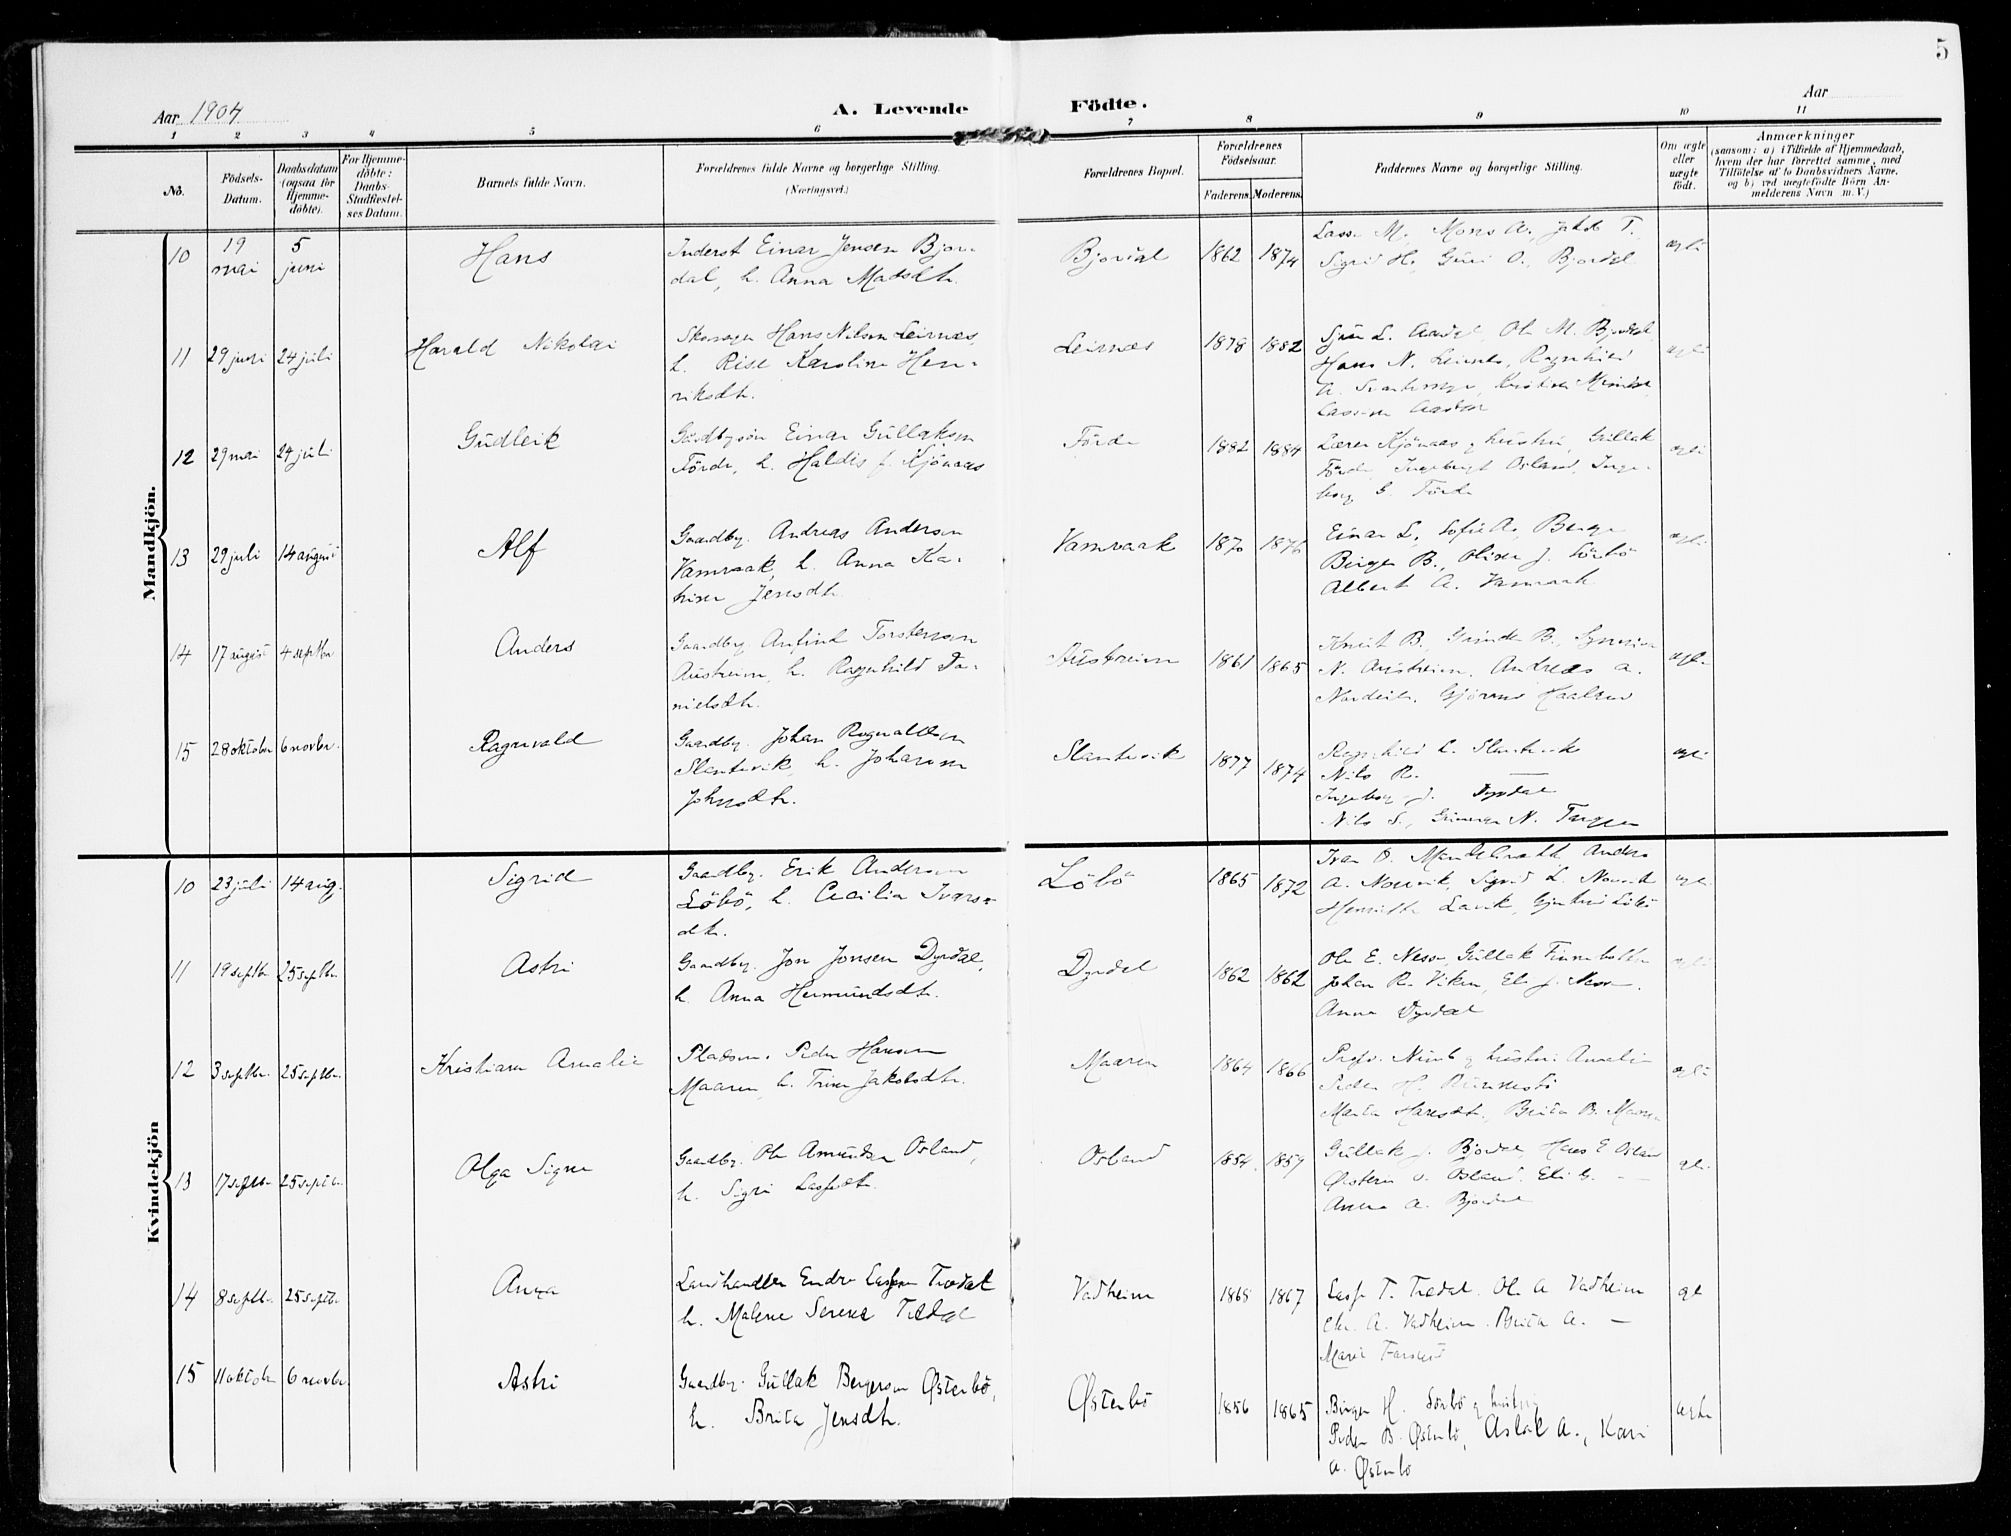 5
Aar 1904
A. Levende Födte.
Aar
1 2 3 4 5 6 7 8 9 10 11
No.
Födsels-Datum.
Daabsdatum (ogsaa for Hjemme-döbte).
For Hjemme-döbte: Daabs-Stadfæstel-ses Datum.
Barnets fulde Navn.
Forældrenes fulde Navne og borgerlige Stilling.
(Næringsvei.)
Forældrenes Bopæl.
Forældrenes Födselsaar.
Faderens. Moderens.
Faddernes Navne og borgerlige Stilling.
Om ægte eller uægte födt.
Anmærkninger
(saasom: a) i Tilfælde af Hjemmedaab, hvem der har forrettet samme, med Tilföielse af to Daabsvidners Navne, og b) ved uægtefödte Börn An-melderens Navn m. V.)
Mandkjön.
10 19 mai 5 juni Hans
Inderst Einar Jensen Bjor-
dal, h. Anna Madsdtr.
Bjordal 1862 1874
Lasse M., Mons A., Jakob T.
Sigrid H., Guri O., Bjordal
11 29 juni 24 juli Harald Nikolai
Skomager Hans Nilsen Leirnes,
h. Rise Karoline Hen-
riksdtr.
Leirnes 1878 1882
L. Aardal, Ole M. Bjordal
Hans N. Leirnes, Ragnhild
12 29 mai 24 juli Gudleik
Gaardbr.sön Einar Gullaksen
Förde, h. Haldis f. Kjönaas
Förde 1882 1884
Lærer Kjönaas g hustru, Gullak
Förde, Ingebrigt Osland, Inge-
borg G. Förde
13 29 juli 14 august Alf
Gaardbr. Andreas Andersen
Vamraak, h. Anna Ka-
trine Jensdtr.
Vamraak 1870 1876
Einar L., Sofie A. Berge
Birger B., Oline J. Sörbö
Albert A. Vamraak
14 17 august 4 septbr Anders
Gaardbr. Anfind Torstensen
Austreim, h. Ragnhild Da-
nielsdtr.
Austreim 1861 1865
Knut B.
N. Austreim, Andreas A.
15 28 oktober 6 novbr. Ragnvald
Gaardbr. Johan Ragnvaldsen
Slantevik, h. Johanne
Johnsdtr.
Slantevik 1877 1874
Ragnhild L. Slantevik
Nils R. —
Ingeborg J. Dyrdal
Nils S., Gunnar N.
Kvindekjön
10 23 juli 14 aug. Sigrid
Gaardbr. Erik Andersen
Löbö, h. Cecilia Ivars-
dtr.
Löbö 1865 1872
Ivar O. Anders
A. Nesvik, Sigrid L. Nesvik
Henrik Lavik,
11 19 septbr 25 septbr. Astri
Gaardbr. Jon Jonsen Dyrdal,
h. Anna Hermundsdtr.
Dyrdal 1862 1862
Ole E. Nesse, Gullak
Johan R. Viken, Eli J. Nesse.
Anna Dyrdal
12 3 septbr. 25 septbr. Kristiane Amalie
Pladsm. Peder Hansen
Maaren, h. Trine Jakobsdtr.
Maaren 1864 1866
hustru Amalie
Peder H.
Marta Hansdtr, Brita B. Maaren
13 17 septbr 25 septbr. Olga Signe
Gaardbr. Ole Amundsen Osland,
h. Sigri Lassedtr.
Osland 1854 1857
Gullak J. Bjordal Hans E Osland
Østen O. Osland. Eli E. —
Anna A. Bjordal
14 8 septbr. 25 septbr Anna
Landhandler Endre Lassesen Trædal
h. Malene Serene Trædal
Vadheim 1865 1867
Lasse T. Trædal. Ole A Vadheim
Chr. A. Vadheim. Brita A. —
Marie
15 11 oktobr 6 novbr. Astri
Gaardbr. Gullak Bergersen Østerbö,
h. Brita Jensdtr.
Østerbö 1856 1865
Birger H. Sörbö g hustru
Peder B. Østerbö, Aslak A., Kari
A. Østerbö
ægte